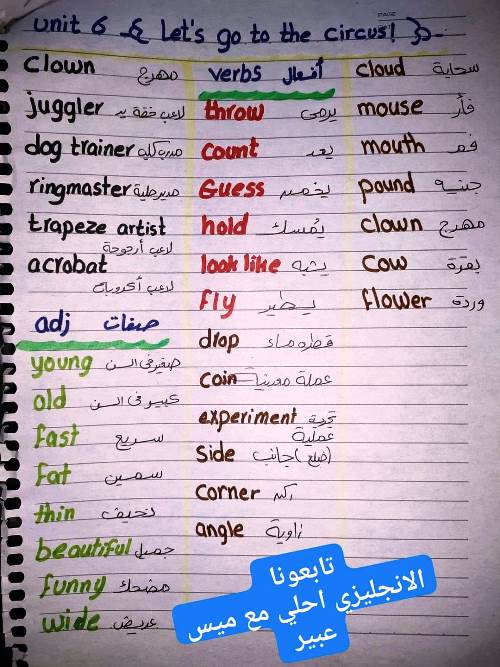 unit 6 { Let's go to the circus! }
PAGE
clown مهرج
juggler لاعب خفة يد
dog trainer مدرب كلاب
ringmaster مدير حلبة
trapeze artist
لاعب أرجوحة
acrobat
لاعب أكروبات
adj صفات
young صغير في السن
old كبير في السن
fast سريع
fat سمين
thin نحيف
beautiful جميل
funny مضحك
wide عريض
verbs أفعال
throw يرمى
count يعد
Guess يخمن
hold يمسك
look like يشبه
fly يطير
drop قطرة ماء
coin عملة معدنية
experiment تجربة
عملية
side جانب (ضلع)
corner ركن
angle زاوية
cloud سحابة
mouse فأر
mouth فم
pound جنيه
clown مهرج
cow بقرة
flower وردة
تابعونا
الانجليزي احلي مع ميس
عبير